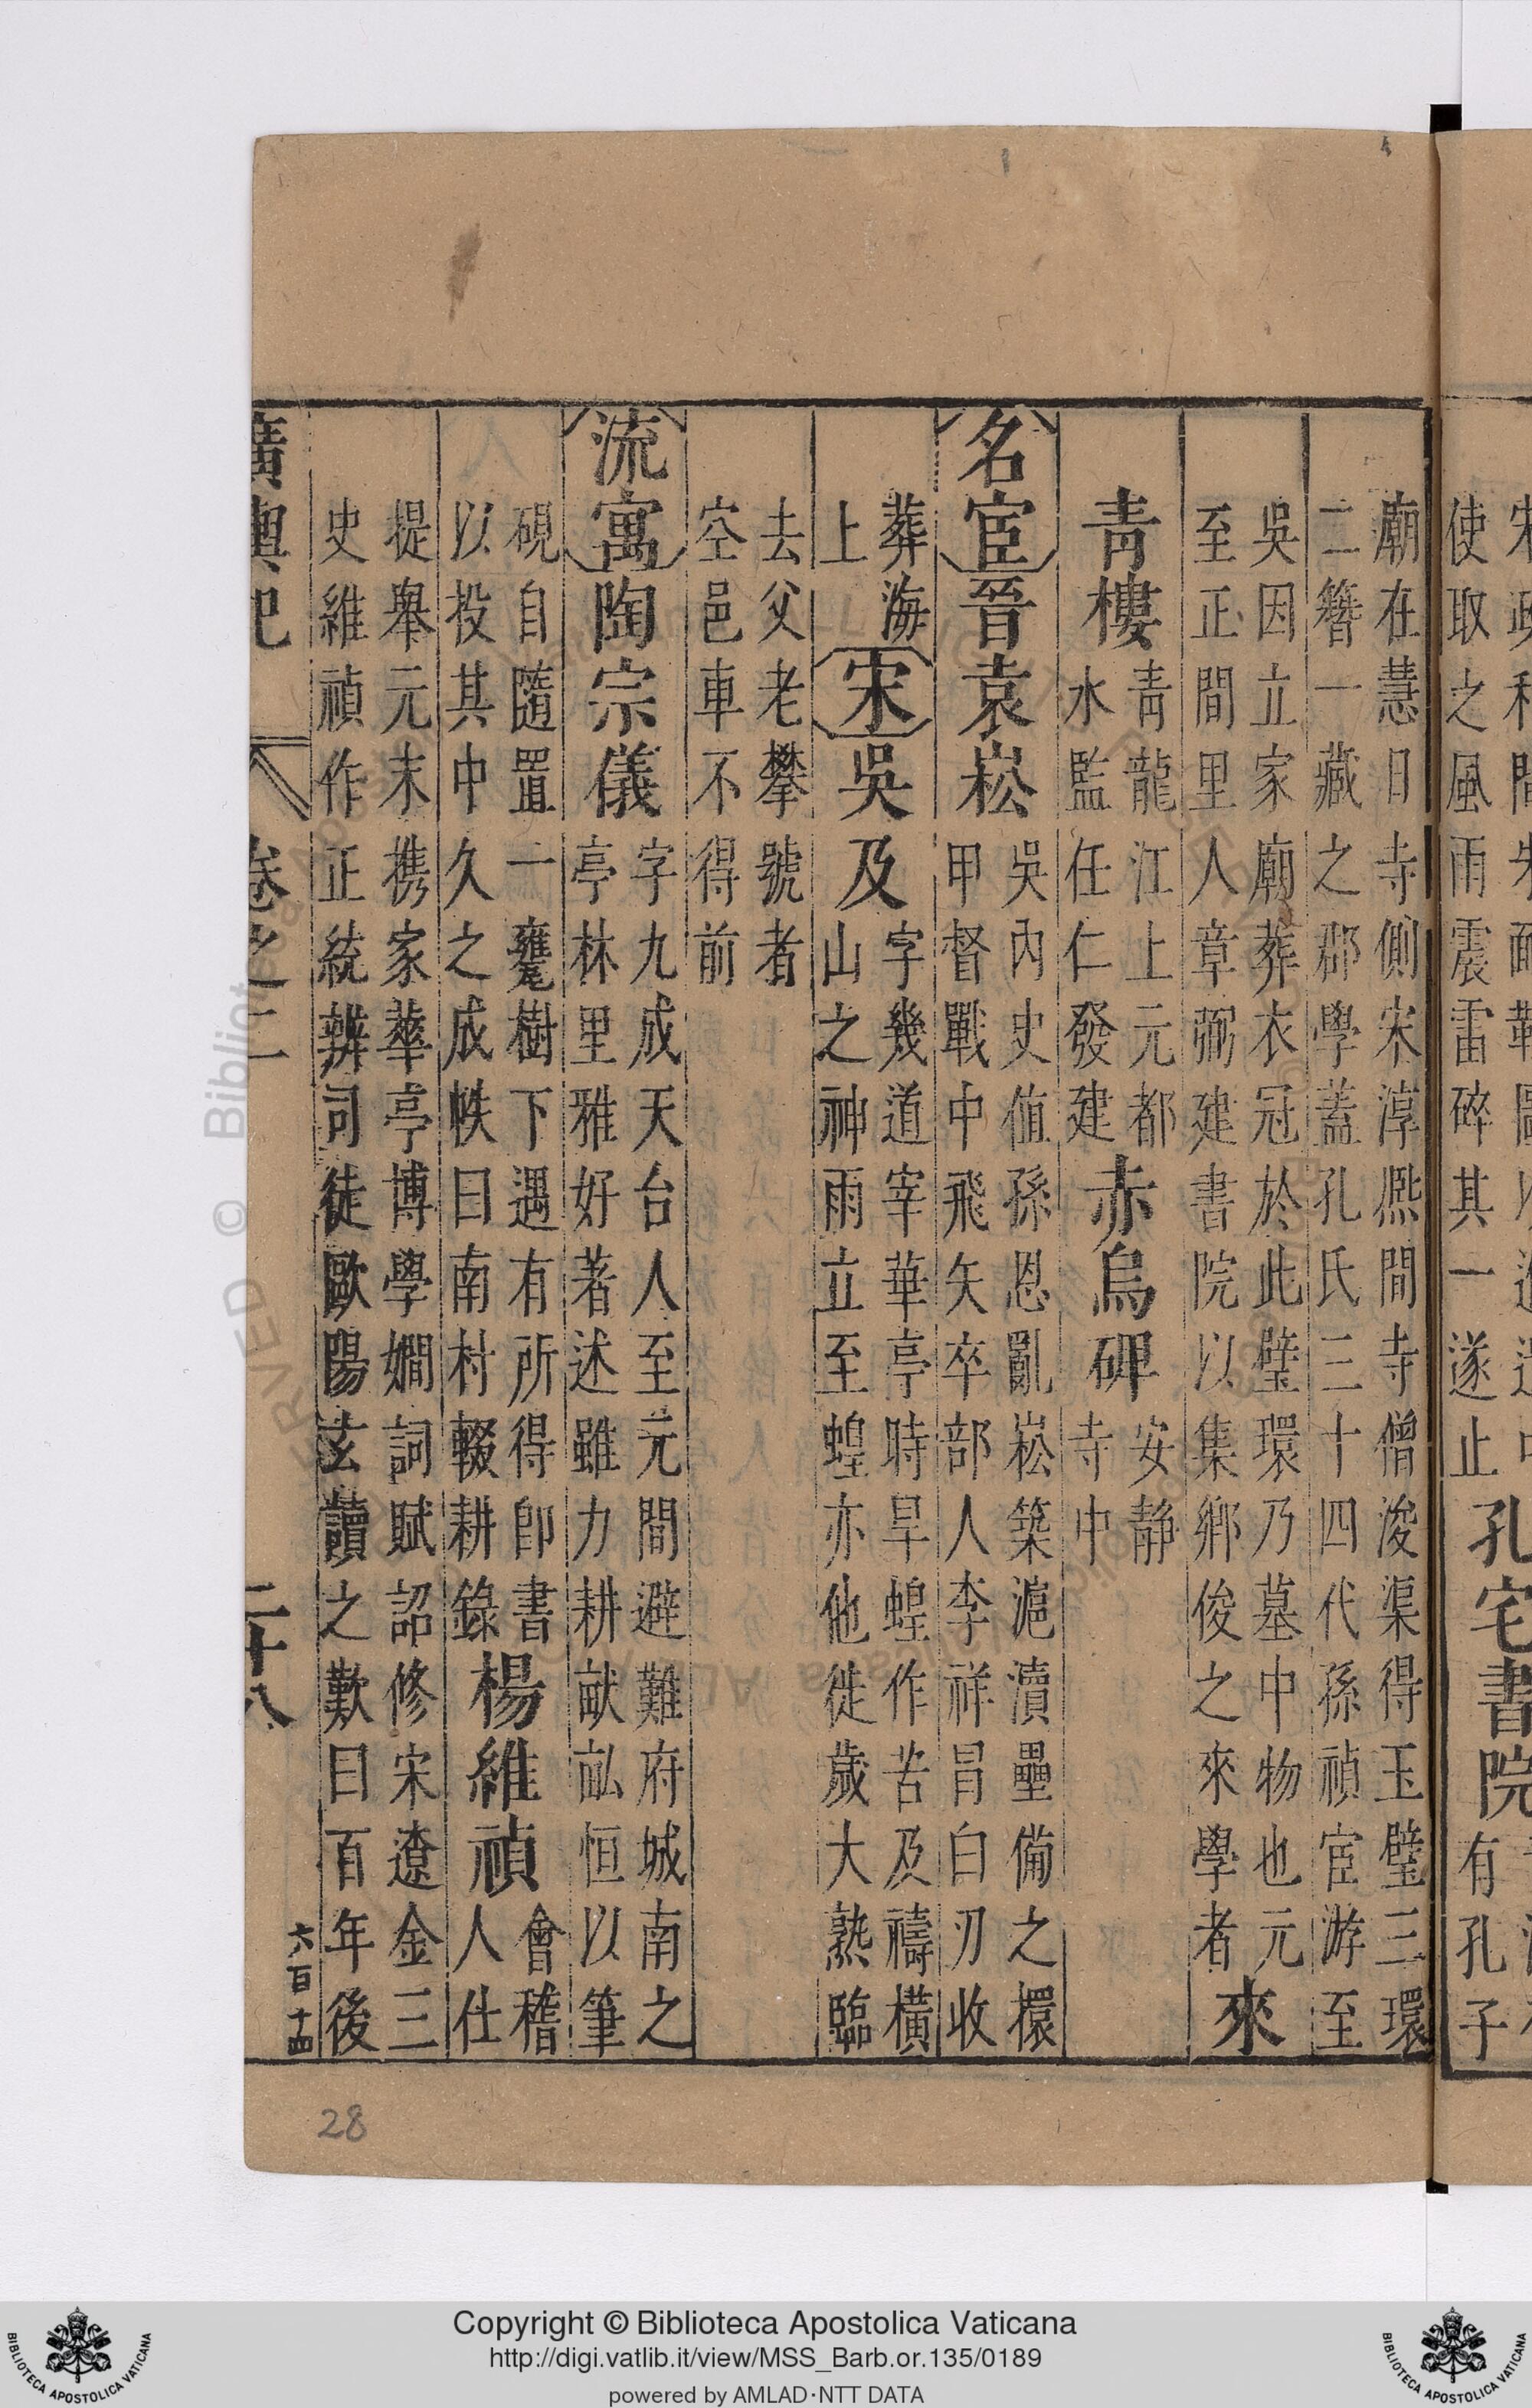 使取之風雨震雷碎其一遂止
孔宅書院
有孔子
廟在慧日寺側宋淳熈間寺僧浚渠得玉璧三環
二簪一藏之郡學蓋孔氏三十四代孫禎宦游至
吳因立家廟葬衣冠於此璧環乃墓中物也元
至正間里人章弼建書院以集鄉俊之來學者
來
青樓
青龍江上元都
水監任仁發建
赤烏碑
安静
寺中
名宦
晉袁崧
吳內史值孫恩亂崧築滬瀆壘備之擐
甲督戰中飛矢卒部人李祥冒白刃收
葬海
上
宋
吳及
字幾道宰華亭時旱蝗作苦及禱橫
山之神雨立至蝗亦他徙歲大熟臨
去父老攀號者
空邑車不得前
流寓
陶宗儀
字九成天台人至元間避難府城南之
亭林里雅好著述雖力耕畎畝恒以筆
硯自隨置一甕樹下遇有所得卽書
以投其中久之成帙曰南村輟耕錄
楊維禎
會稽
人仕
提舉元末携家華亭博學嫺詞賦詔修宋遼金三
史維禎作正統辨司徒歐陽玄讀之歎曰百年後
廣輿記
卷之二
二十八
六百十四
28
Copyright © Biblioteca Apostolica Vaticana
http://digi.vatlib.it/view/MSS_Barb.or.135/0189
powered by AMLAD·NTT DATA
BIBLIOTECA APOSTOLICA VATICANA
BIBLIOTECA APOSTOLICA VATICANA